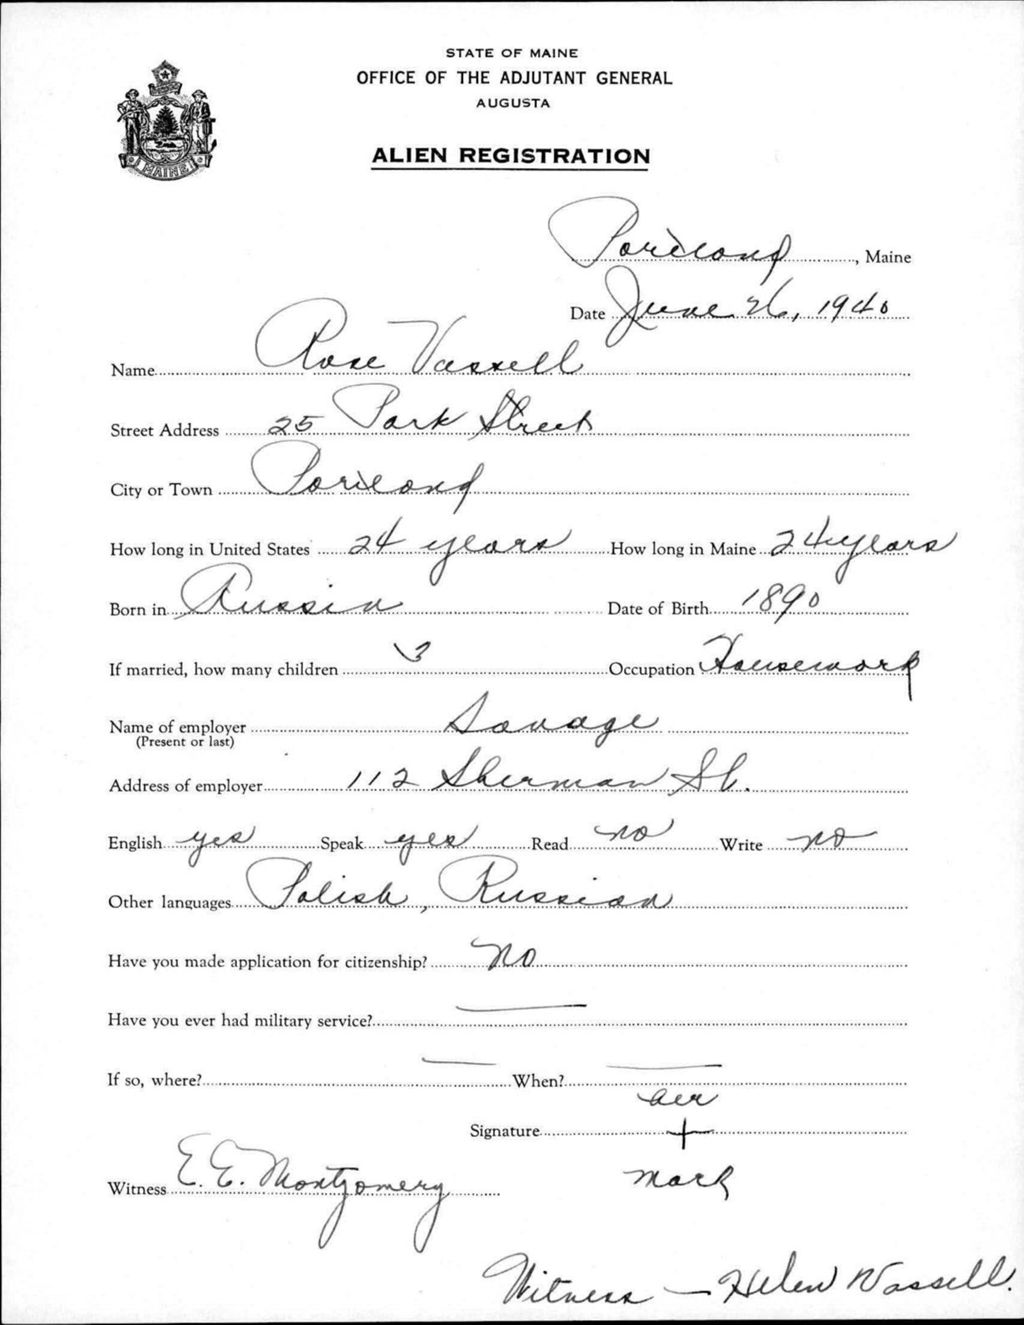 STATE OF MAINE
OFFICE OF THE ADJUTANT GENERAL
AUGUSTA
ALIEN REGISTRATION
MAINE
Portland, Maine
Date June 26, 1940
Name Rose Vassell
Street Address 25 Park Street
City or Town Portland
How long in United States 24 years How long in Maine 24 years
Born in Russia Date of Birth 1890
If married, how many children 3 Occupation Housework
Name of employer Savage
(Present or last)
Address of employer 112 Sherman St.
English yes Speak yes Read no Write no
Other languages Polish, Russian
Have you made application for citizenship? No
Have you ever had military service? —
If so, where? — When? —
her
Signature +
mark
Witness E. E. Montgomery
Witness — Helen Wassell.